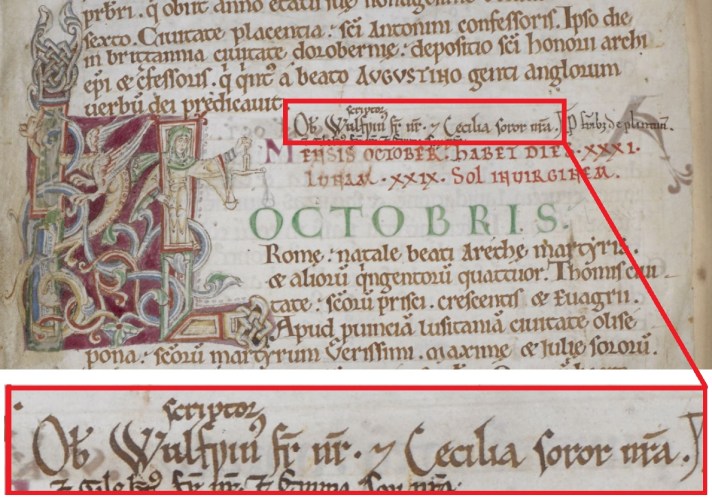 prƀri. q̇ obiit anno etatis sue nonagesimo
sexto. Ciuitate placentia: sc̄i Antonini confessoris. Ipso die
in brittannia ciuitate dorobernie: depositio sc̄i honorii archi
ep̄i ⁊ c̄fessoris. q̇ q̇nt' a beato AUGUSTINO genti anglorum
uerbū dei predicauit.
scriptor
Oƀ Wulfriuꝰ fr̄ nr̄. ⁊ Cecilia soror nr̄a.
MENSIS OCTOBER: habET DIES. XXXI.
LUNAM. XXIX. Sol IN VIRGINEM.
OCTOBRIS.
Rome: natale beati Arethe martyris.
⁊ aliorū q̇ngentorū quattuor. Thomis ciui
tate: sc̄orū prisci. crescentis ⁊ Euagrii.
Apud prouincia lusitaniā ciuitate olise
pona: sc̄orū martyrum Verissimi. maxime ⁊ Iulie sororū.
scriptor
Oƀ Wulfriuꝰ fr̄ nr̄. ⁊ Cecilia soror nr̄a.